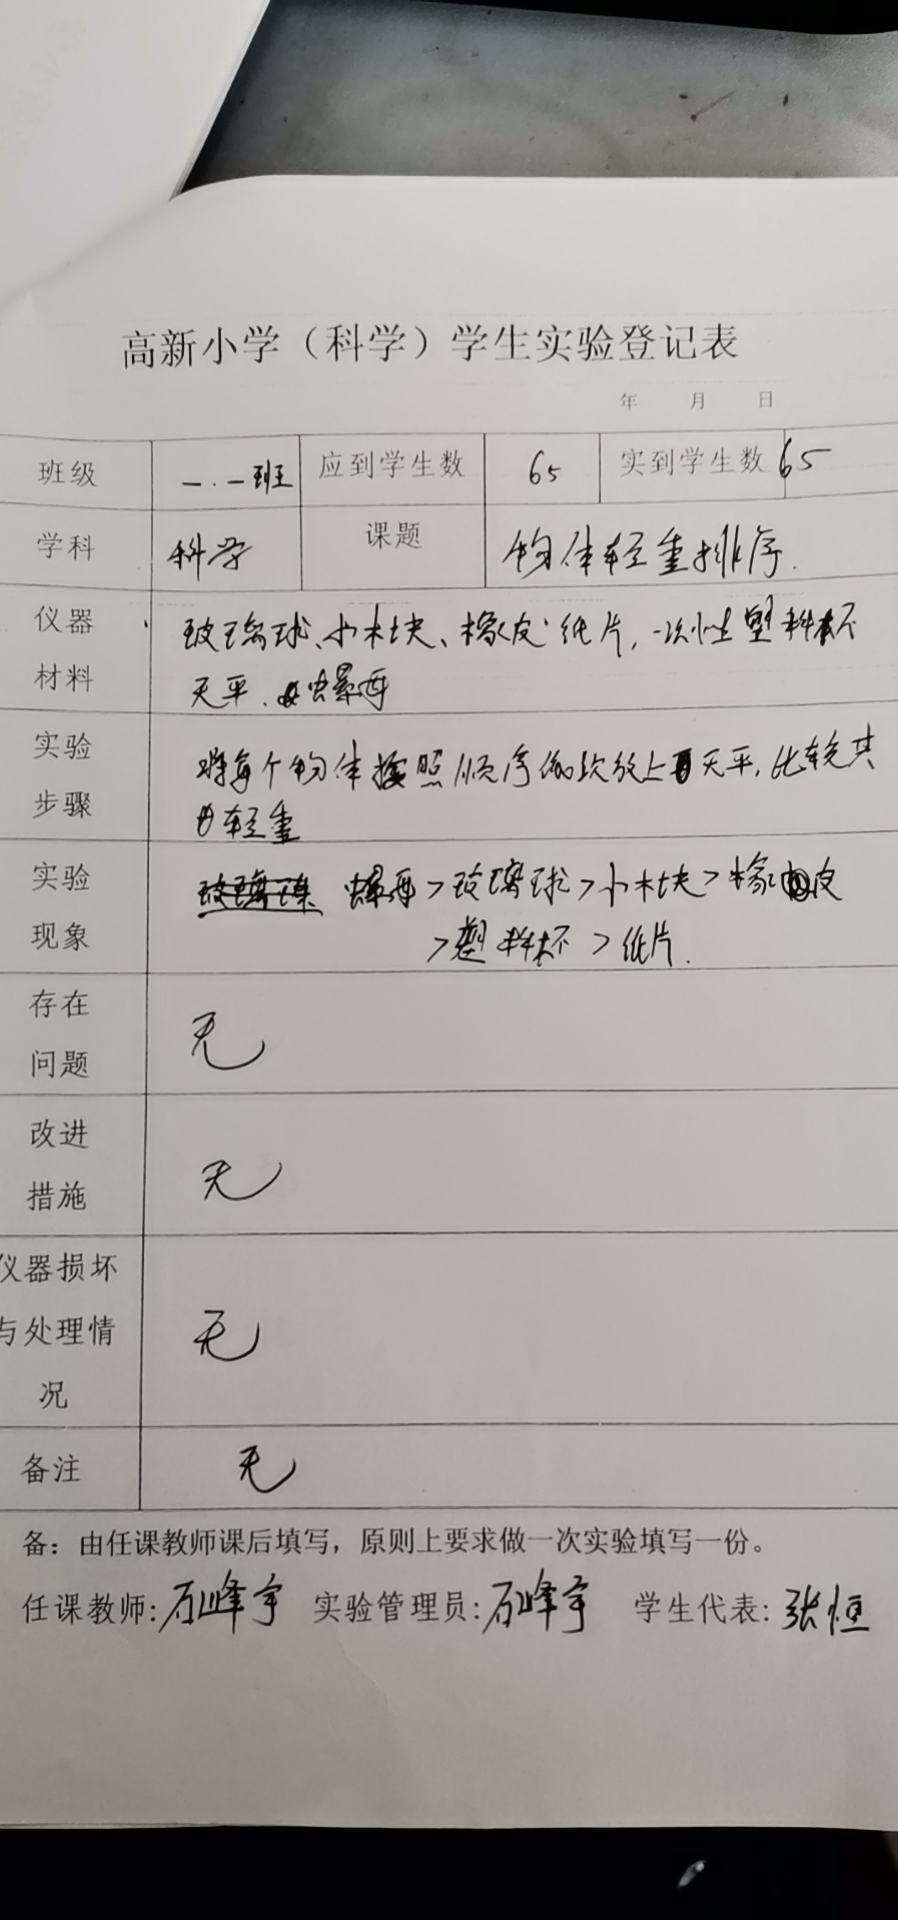 高新小学（科学）学生实验登记表
年 月 日
班级 一.一班 应到学生数 65 实到学生数 65
学科 科学 课题 物体轻重排序.
仪器材料 玻璃球、小木块、橡皮 纸片,一次性塑料杯
天平、螺母
实验步骤 将每个物体按照顺序依次放上天平,比较其
轻重
实验现象 >玻璃球>小木块>橡皮
>塑料杯>纸片.
存在问题 无
改进措施 无
仪器损坏与处理情况 无
备注 无
备：由任课教师课后填写，原则上要求做一次实验填写一份。
任课教师:石峰宇 实验管理员:石峰宇 学生代表:张恒